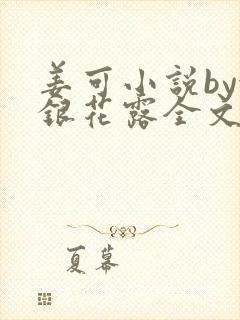 姜可小説by
銀花露全文
夏幕